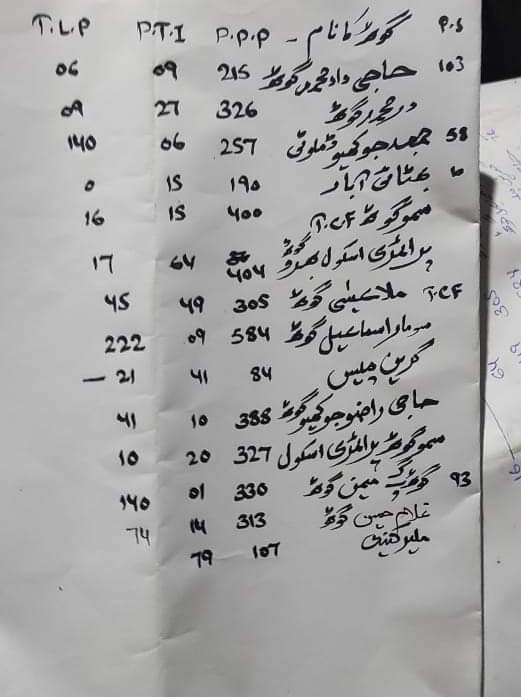 P.S گوٹھ کا نام - P.P.P P.T.I T.L.P
103 حاجی داد محمد گوٹھ 215 09 06
در محمد گوٹھ 326 27 09
58 جمعہ جوکھیو ڈملوٹی 257 06 140
بھٹائی آباد 190 15 0
سموں گوٹھ T.CF 400 15 16
پرائمری اسکول گوٹھ 404 64 17
T.CF ملا عیسیٰ گوٹھ 305 49 45
سومار اسماعیل گوٹھ 584 09 222
گرین پیلس 84 41 21 -
حاجی راضنو جوکھیو گوٹھ 388 10 41
سموں گوٹھ پرائمری اسکول 327 20 10
93 گوٹھ میمن گوٹھ 330 01 140
غلام حسین گوٹھ 313 14 74
ملیر کینٹ 107 79